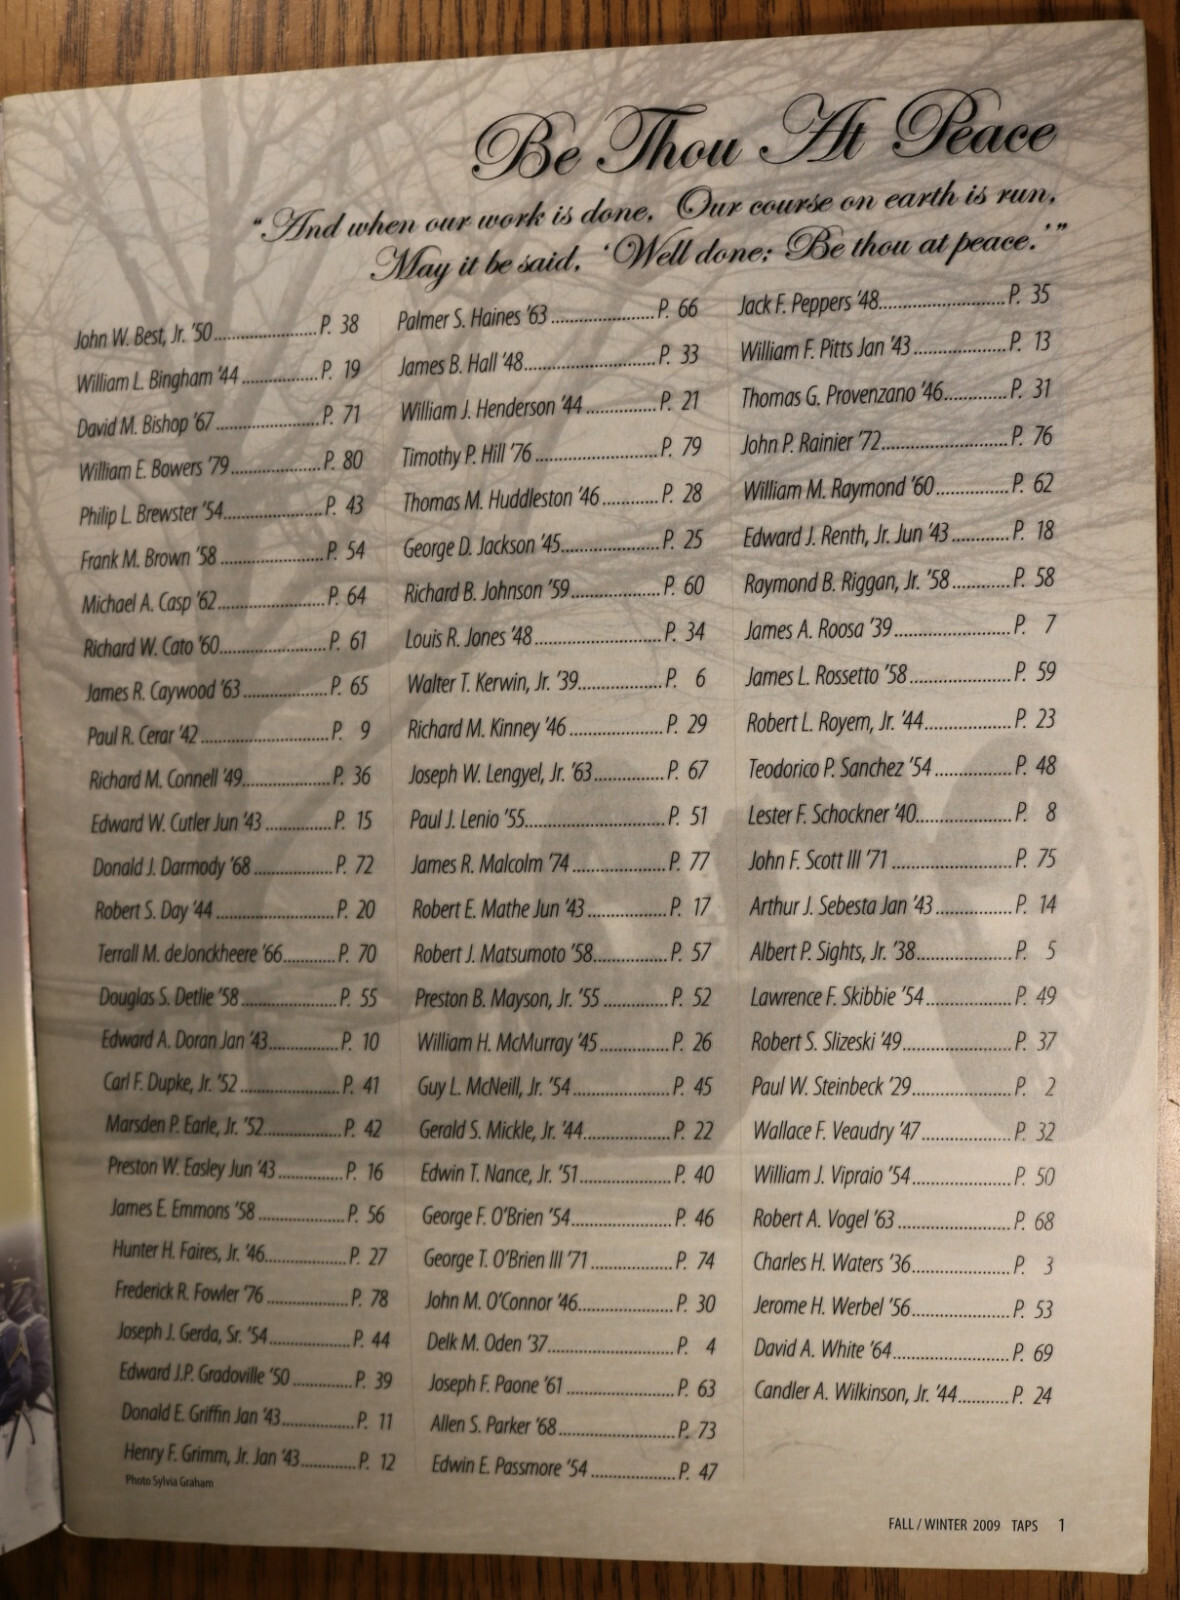 Be Thou At Peace
"And when our work is done, Our course on earth is run,
May it be said, 'Well done; Be thou at peace.'"
John W. Best, Jr. '50.....................P. 38
William L. Bingham '44................P. 19
David M. Bishop '67.....................P. 71
William E. Bowers '79..................P. 80
Philip L. Brewster '54....................P. 43
Frank M. Brown '58......................P. 54
Michael A. Casp '62......................P. 64
Richard W. Cato '60......................P. 61
James R. Caywood '63.................P. 65
Paul R. Cerar '42..........................P. 9
Richard M. Connell '49.................P. 36
Edward W. Cutler Jun '43.............P. 15
Donald J. Darmody '68................P. 72
Robert S. Day '44........................P. 20
Terrall M. deJonckheere '66..........P. 70
Douglas S. Detlie '58...................P. 55
Edward A. Doran Jan '43..............P. 10
Carl F. Dupke, Jr. '52....................P. 41
Marsden P. Earle, Jr. '52...............P. 42
Preston W. Easley Jun '43............P. 16
James E. Emmons '58.................P. 56
Hunter H. Faires, Jr. '46................P. 27
Frederick R. Fowler '76................P. 78
Joseph J. Gerda, Sr. '54................P. 44
Edward J.P. Gradoville '50............P. 39
Donald E. Griffin Jan '43..............P. 11
Henry F. Grimm, Jr. Jan '43...........P. 12
Photo Sylvia Graham
Palmer S. Haines '63....................P. 66
James B. Hall '48..........................P. 33
William J. Henderson '44..............P. 21
Timothy P. Hill '76........................P. 79
Thomas M. Huddleston '46...........P. 28
George D. Jackson '45...................P. 25
Richard B. Johnson '59..................P. 60
Louis R. Jones '48........................P. 34
Walter T. Kerwin, Jr. '39................P. 6
Richard M. Kinney '46..................P. 29
Joseph W. Lengyel, Jr. '63.............P. 67
Paul J. Lenio '55..........................P. 51
James R. Malcolm '74..................P. 77
Robert E. Mathe Jun '43...............P. 17
Robert J. Matsumoto '58..............P. 57
Preston B. Mayson, Jr. '55............P. 52
William H. McMurray '45.............P. 26
Guy L. McNeill, Jr. '54..................P. 45
Gerald S. Mickle, Jr. '44................P. 22
Edwin T. Nance, Jr. '51.................P. 40
George F. O'Brien '54...................P. 46
George T. O'Brien III '71...............P. 74
John M. O'Connor '46..................P. 30
Delk M. Oden '37........................P. 4
Joseph F. Paone '61.....................P. 63
Allen S. Parker '68.......................P. 73
Edwin E. Passmore '54.................P. 47
Jack F. Peppers '48.......................P. 35
William F. Pitts Jan '43..................P. 13
Thomas G. Provenzano '46...........P. 31
John P. Rainier '72........................P. 76
William M. Raymond '60..............P. 62
Edward J. Renth, Jr. Jun '43..........P. 18
Raymond B. Riggan, Jr. '58...........P. 58
James A. Roosa '39......................P. 7
James L. Rossetto '58...................P. 59
Robert L. Royem, Jr. '44................P. 23
Teodorico P. Sanchez '54..............P. 48
Lester F. Schockner '40.................P. 8
John F. Scott III '71......................P. 75
Arthur J. Sebesta Jan '43..............P. 14
Albert P. Sights, Jr. '38..................P. 5
Lawrence F. Skibbie '54................P. 49
Robert S. Slizeski '49....................P. 37
Paul W. Steinbeck '29...................P. 2
Wallace F. Veaudry '47..................P. 32
William J. Vipraio '54....................P. 50
Robert A. Vogel '63......................P. 68
Charles H. Waters '36...................P. 3
Jerome H. Werbel '56...................P. 53
David A. White '64.......................P. 69
Candler A. Wilkinson, Jr. '44..........P. 24
FALL / WINTER 2009 TAPS 1